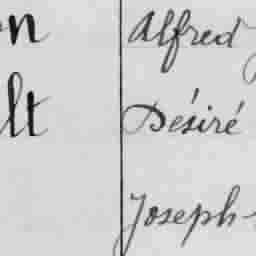 on Alfred
lt Désiré
Joseph